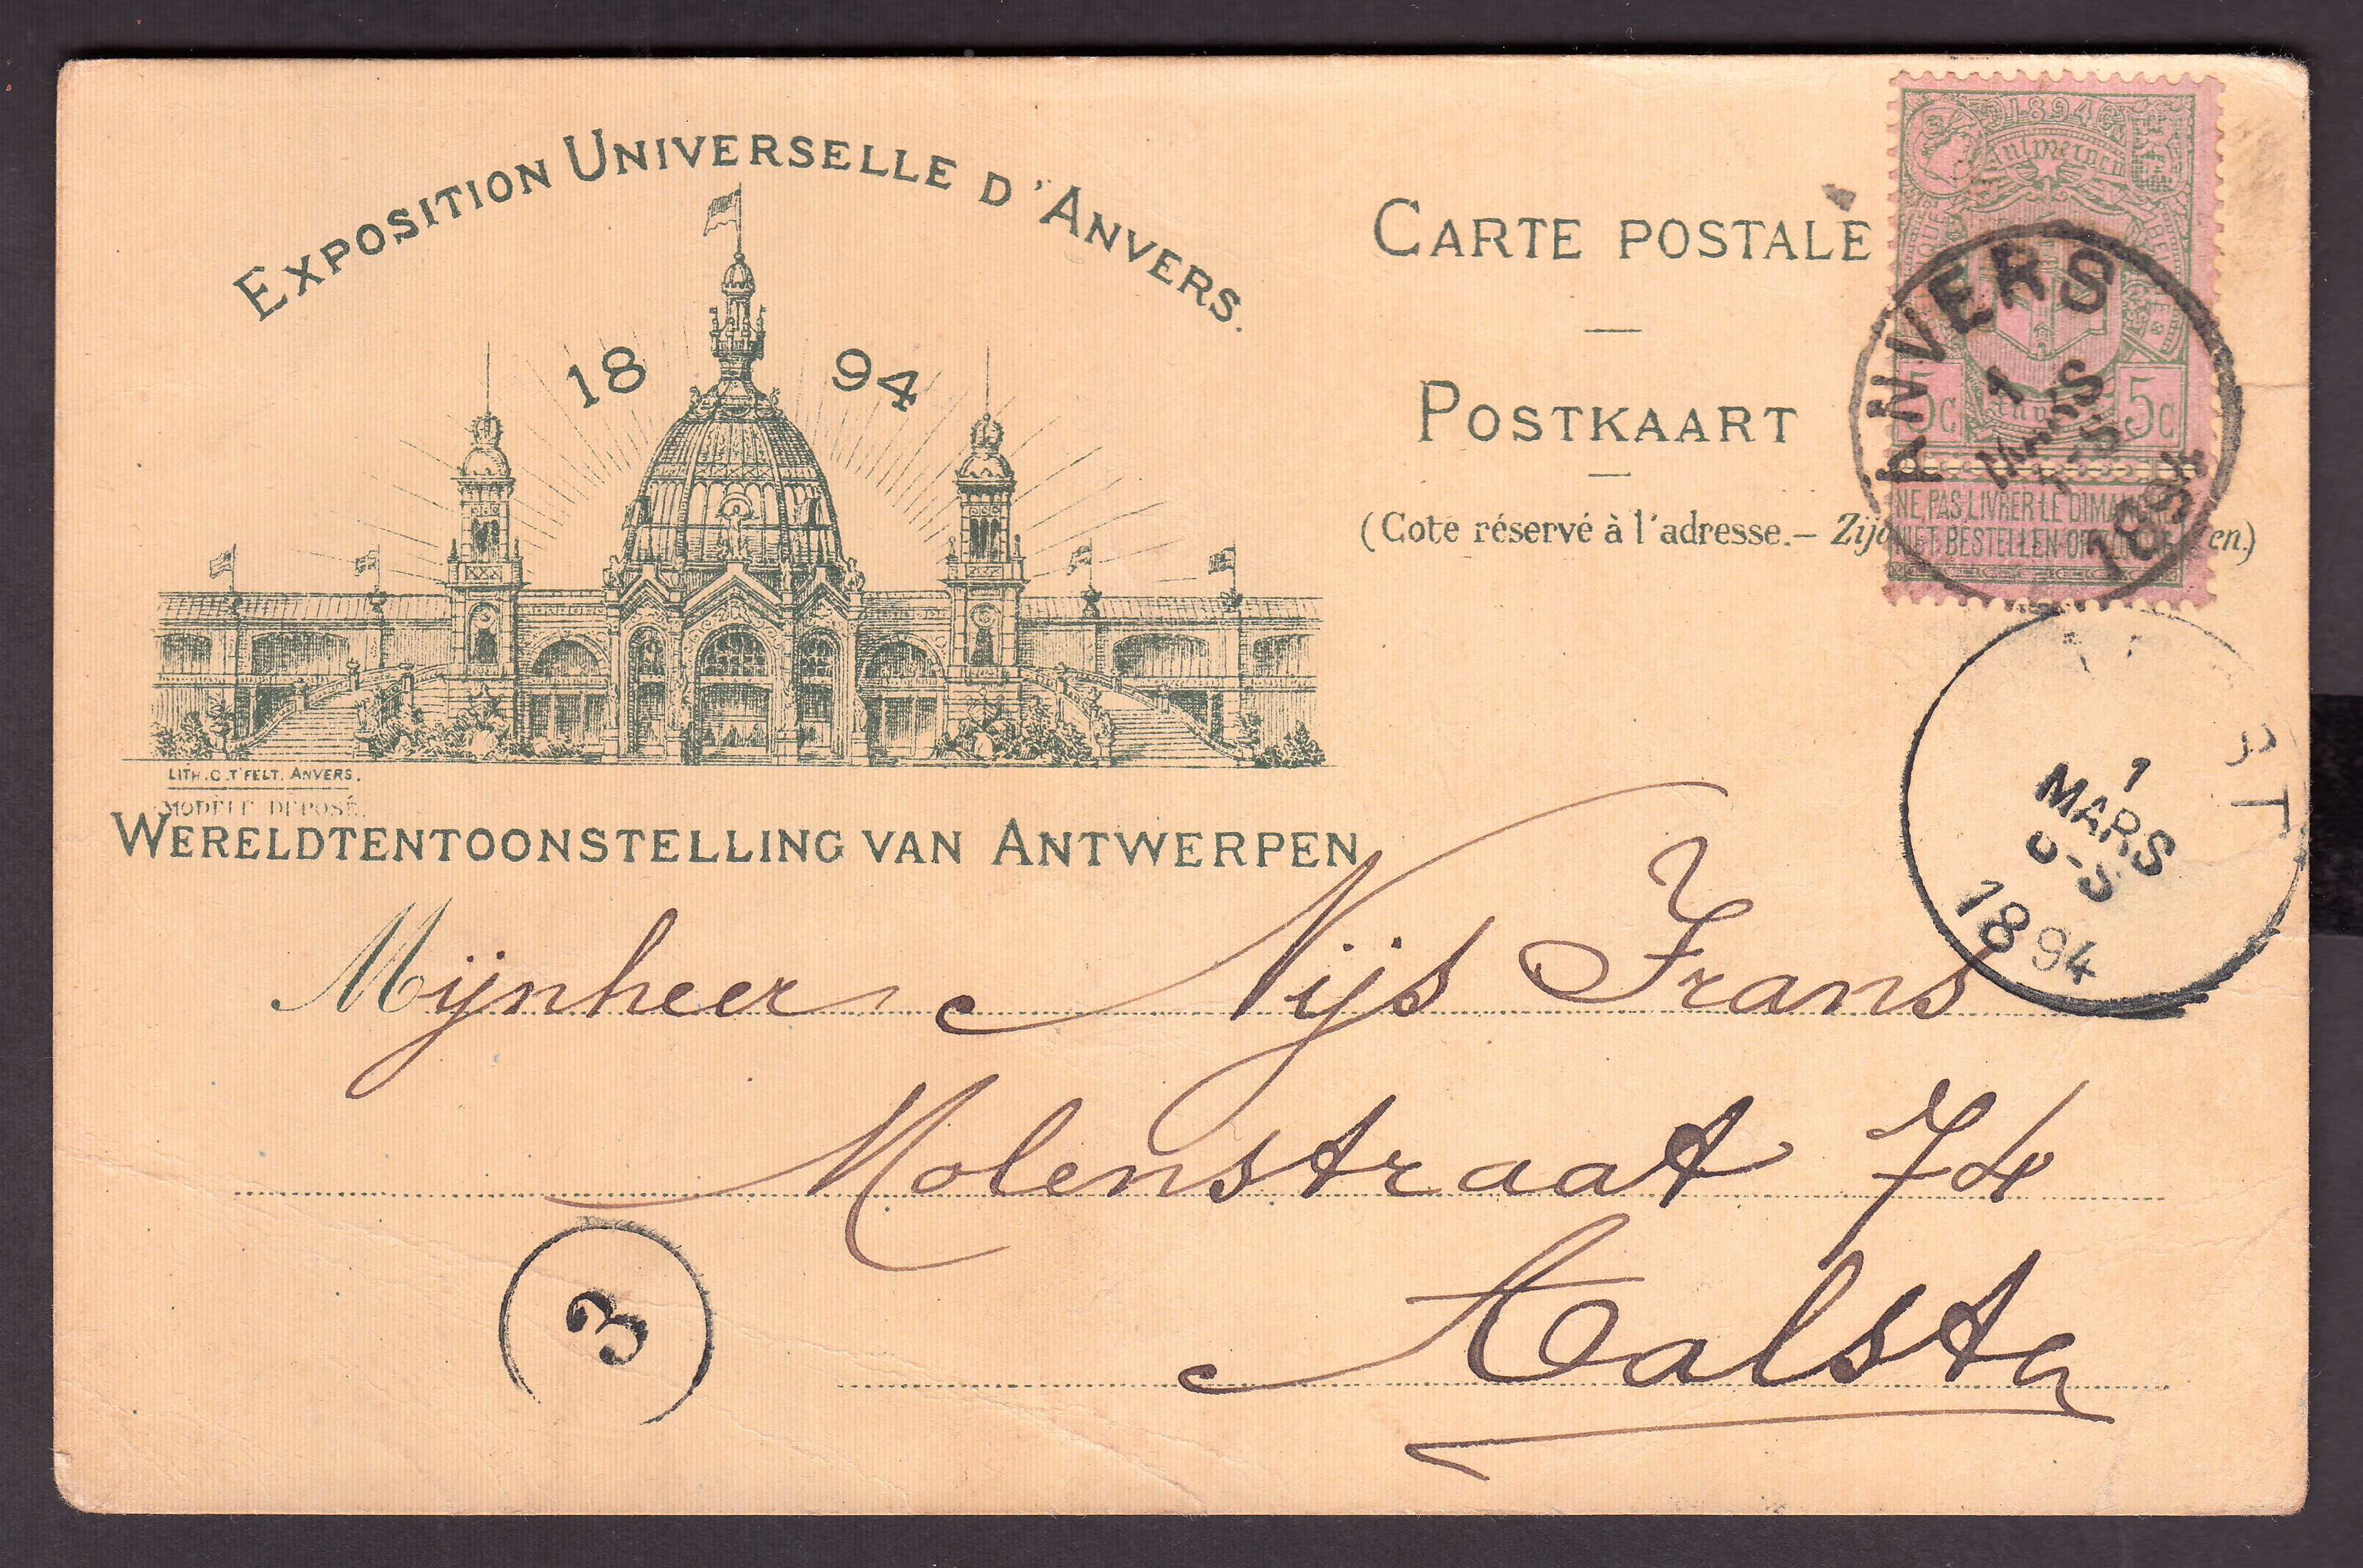 EXPOSITION UNIVERSELLE D'ANVERS.
18 94
LITH. C. T'FELT. ANVERS.
MODÈLE DÉPOSÉ.
WERELDTENTOONSTELLING VAN ANTWERPEN
CARTE POSTALE
POSTKAART
(Coté réservé à l'adresse.–
en.)
1894
Antwerpen
5c 5c
NE PAS LIVRER LE DIMANCHE
NIET BESTELLEN OP
ANVERS
1
MARS
1894
1
MARS
1894
Mijnheer Nijs Frans
Molenstraat 74
Aalst
3